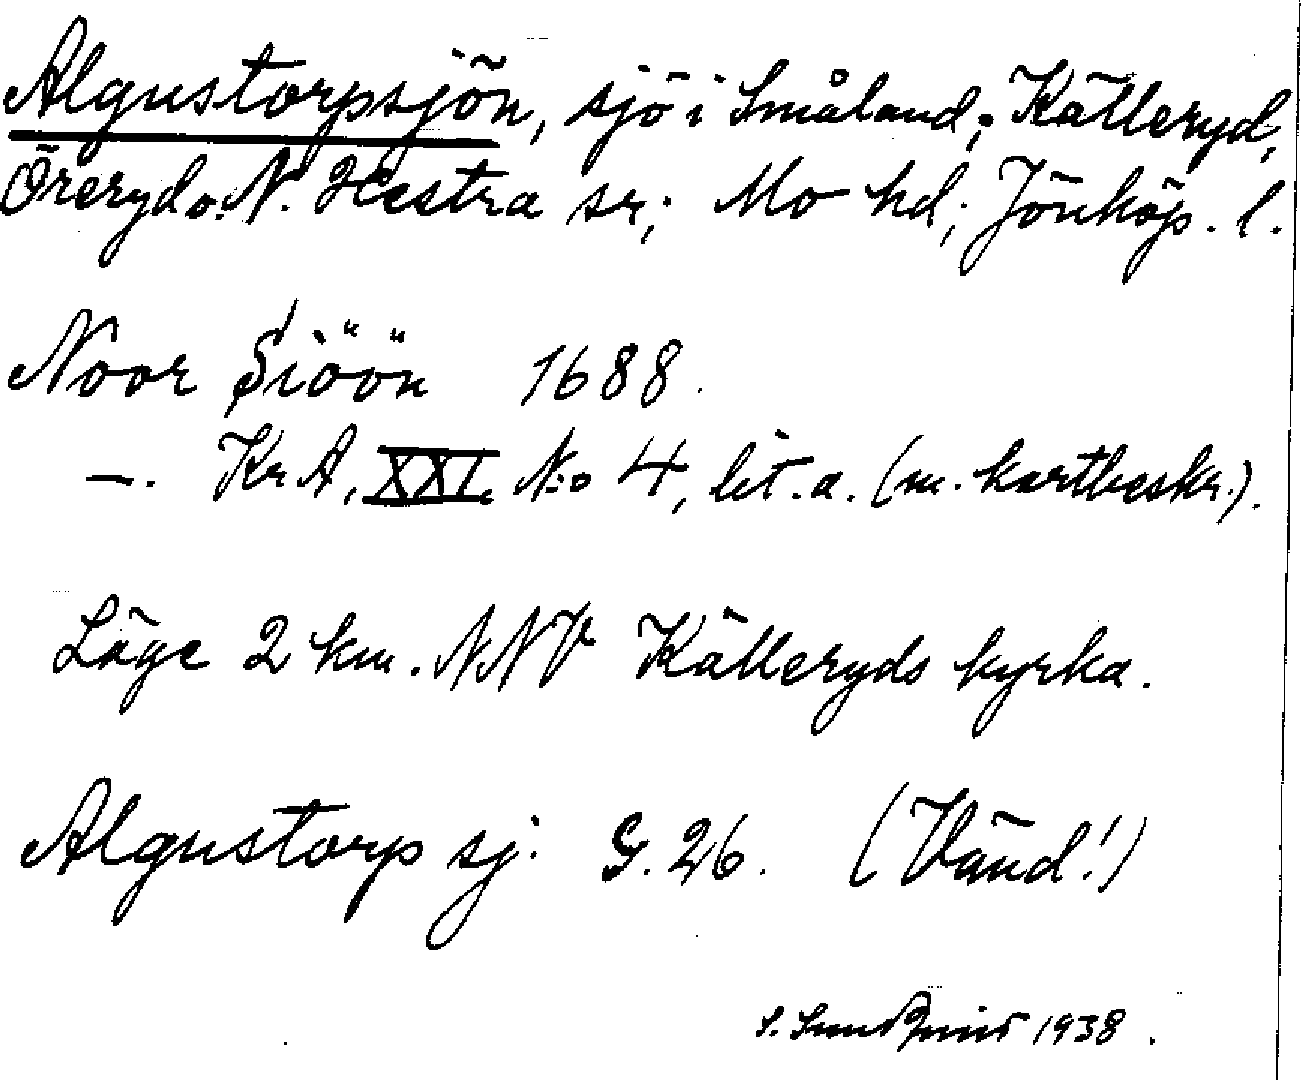 Algustorpsjön, sjö i Småland; Källeryd,
Öreryd o. N. Hestra sr; Mo hd; Jönköp. l.
Noor Siöön 1688.
—. Kr A, XXI, N:o 4, lit. a. (m. kartbeskr.).
Läge 2 km. NNV Källeryds kyrka.
Algustorp sj: G. 26. (Vänd!)
S. Sundquist 1938.